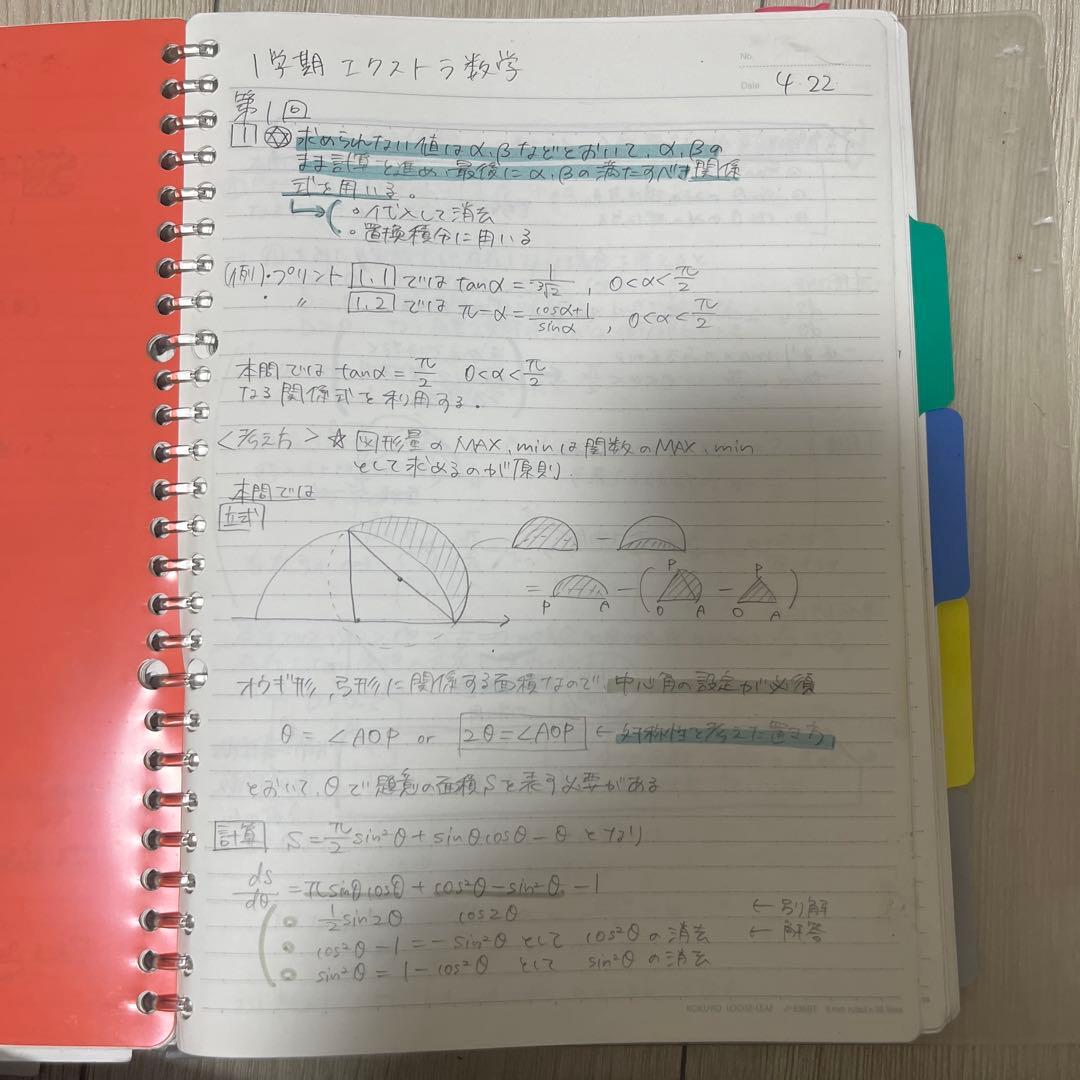 1学期 エクストラ数学
No.
Date 4・22
第1回
1 求められない値はα,βなどとおいて、α,βの
まま計算を進め、最後にα,βの満たすべき関係
式を用いる。
・代入して消去
・置換積分に用いる
(例)・プリント 1.1 では tanα = 1/³√2 , 0<α<π/2
・ 〃 1.2 では π-α = cosα+1/sinα , 0<α<π/2
本問では tanα = π/2 0<α<π/2
なる関係式を利用する.
<考え方> ☆ 図形量のMAX、minは関数のMAX、min
として求めるのが原則.
本問では
立式
−
P
P
= − ( − )
P A O A O A
オウギ形、弓形に関係する面積なので、中心角の設定が必須
θ = ∠AOP or 2θ = ∠AOP ← 対称性を考えた置き方
とおいて、θで題意の面積Sを表す必要がある
計算 S = π/2 sin²θ + sinθcosθ − θ となり
ds/dθ = πsinθcosθ + cos²θ − sin²θ − 1
1/2 sin2θ cos2θ ← 別解
cos²θ − 1 = − sin²θ として cos²θ の消去 ← 解答
sin²θ = 1 − cos²θ として sin²θ の消去
KOKUYO LOOSE-LEAF